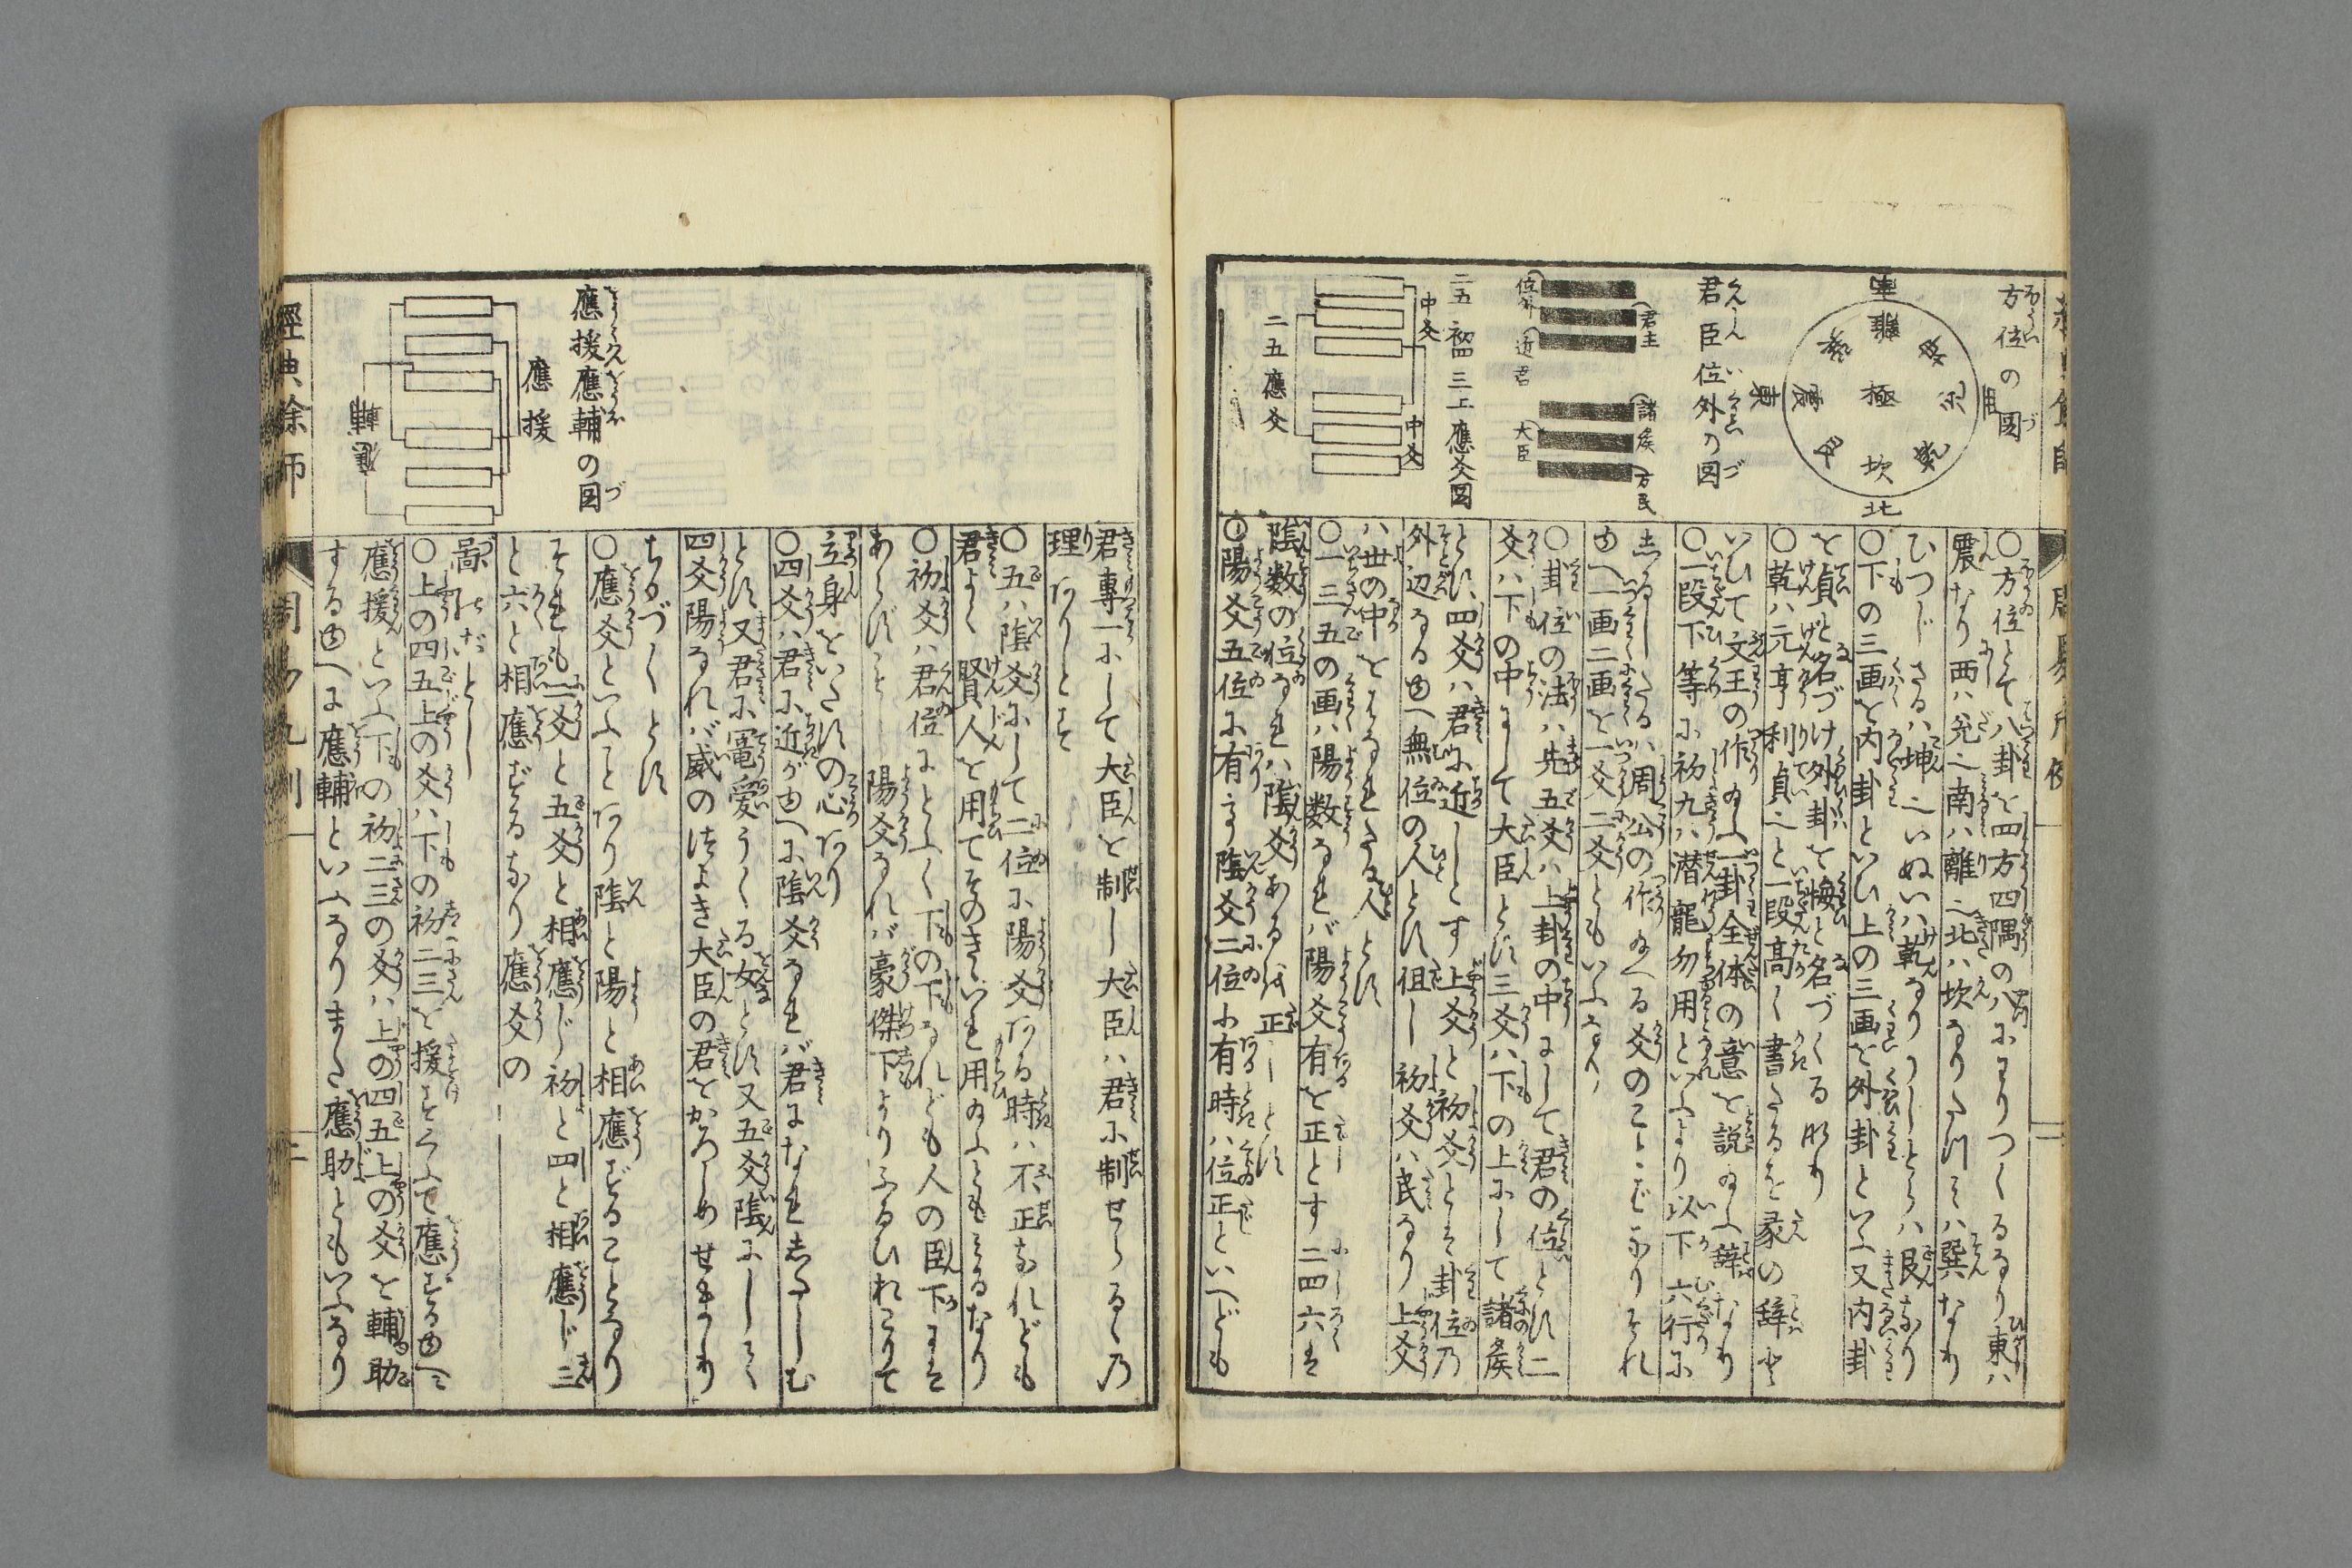 方位の図
南
離
坤
兌
乾
坎
艮
震
巽
極
東
西
北
君臣位外の図
君主
諸矦
万民
位外
近君
大臣
二五 初四 三上 應爻図
中爻
中爻
二五應爻
〇方位とて八卦を四方四隅の八にわりつくるなり東ハ
震なり西ハ兌也南ハ離也北ハ坎なりたつミハ巽なり
ひつじさるハ坤也いぬいハ乾なりうしとらハ艮なり
〇下の三画を内卦といひ上の三画を外卦といふ又内卦
を貞と名づけ外卦を悔と名づくる
〇乾ハ元亨利貞也と一段高く書たるを彖の辞と
いひて文王の作ゐふ一卦全体の意を説ゐふ辞なり
〇一段下等に初九ハ潜龍勿用といふより以下六行に
志るしたるハ周公の作ゐへる爻のことばなりそれ
ゆへ一画二画を一爻二爻ともいふなり
〇卦位の法ハ先五爻ハ上卦の中にして君の位とす二
爻ハ下の中にして大臣とす三爻ハ下の上にして諸矦
とす四爻ハ君に近しとす上爻と初爻とそ卦位乃
外辺なるゆへ無位の人とす但し初爻ハ民なり上爻
ハ世の中をはなれたる人とす
〇一三五の画ハ陽数なれバ陽爻有を正とす二四六は
陰数の位なれハ陰爻あるを正しとす
〇陽爻五位に有り陰爻二位に有時ハ位正といへども
君專一にして大臣を制し大臣ハ君に制せらるゝ乃
理ありとす
〇五ハ陰爻にして二位に陽爻ある時ハ不正なれども
君よく賢人を用てそのきいを用ゐふともミるなり
〇初爻ハ君位にとふく下の下なれども人の臣下には
あらずとし陽爻なれバ豪傑下よりふるひおこりて
立身をいたすの心あり
〇四爻ハ君に近がゆへに陰爻なれバ君になれ志たしむ
とす又君に寵愛うくる女とす又五爻陰にしして
四爻陽なれバ威のつよき大臣の君をかろしめせまり
ちかづくとす
〇應爻といふことあり陰と陽と相應ずることなり
それも二爻と五爻と相應じ初と四と相應じ三
と六と相應ずるなり應爻の
啚のだとし
〇上の四五上の爻ハ下の初二三を援すくふて應ずるゆへに
應援といふ下の初二三の爻ハ上の四五上の爻を輔助
するゆへに應輔といふなりまた應助ともいふなり
應援應輔の図
應援
經典余師
周易凡例
二